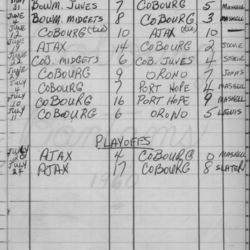 BOWM. JUVES 7 COBOURG 5
JUNE BOWM. MIDGETS 8 COBOURG 3 MASKELL
JUNE 12 COBOURG (tie) 10 AJAX (tie) 10 —
JUNE AJAX 14 COBOURG 2 JUNE
JUNE COB. MIDGETS 6 COB. JUVES 4
JUNE COBOURG 9 ORONO 7 JOHN
JULY 4 COBOURG 7 PORT HOPE 4 MASKELL
JULY 10 COBOURG 16 PORT HOPE 9 MASKELL
JULY 11 COBOURG 6 ORONO 5 LEWIS
PLAYOFFS
JULY AJAX 4 COBOURG 0 MASKELL
JULY AJAX 17 COBOURG 8 SLATER